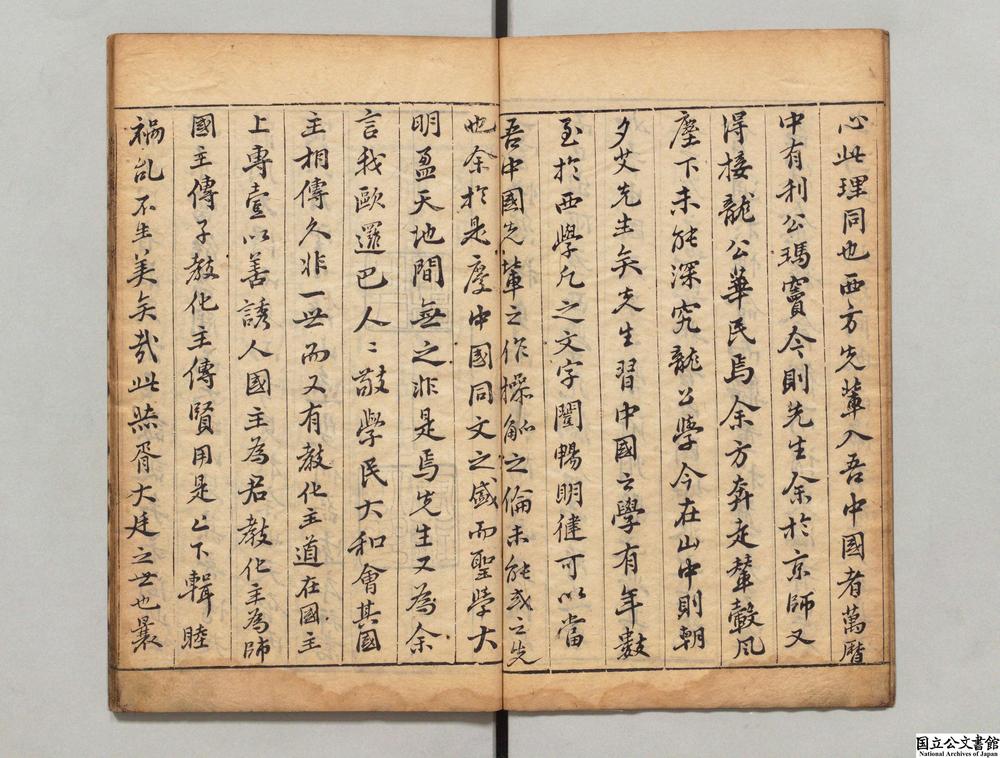 心此理同也西方先輩入吾中國者萬曆
中有利公瑪竇今則先生余於京師又
得接龍公華民焉余方奔走輦轂風
塵下未能深究龍公學今在山中則朝
夕艾先生矣先生習中國之學有年數
至於西學凡之文字闓暢明健可以當
吾中國先輩之作操觚之倫未能或之先
也余於是慶中國同文之盛而聖學大
明盈天地間無之非是焉先生又為余
言我歐邏巴人〻敬學民大和會其國
主相傳久非一世而又有教化主道在國主
上專壹以善誘人國主為君教化主為師
國主傳子教化主傳賢用是上下輯睦
禍乱不生美矣哉此熊胥大廷之世也曩
国立公文書館
National Archives of Japan